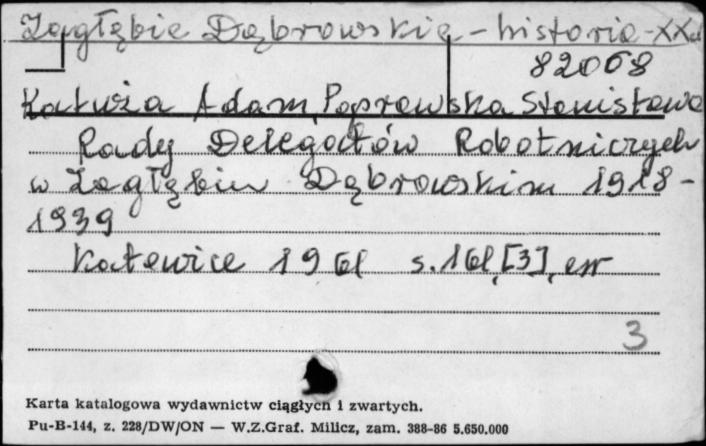 Zagłębie Dąbrowskie - historia - XX w
82068
Kałuża Adam, Poprawska Stanisława
Rady Delegatów Robotniczych
w Zagłębiu Dąbrowskim 1918-
1939
Katowice 1961 s. 161, [3], err
3
Karta katalogowa wydawnictw ciągłych i zwartych.
Pu-B-144, z. 228/DW/ON — W.Z.Graf. Milicz, zam. 388-86 5.650.000